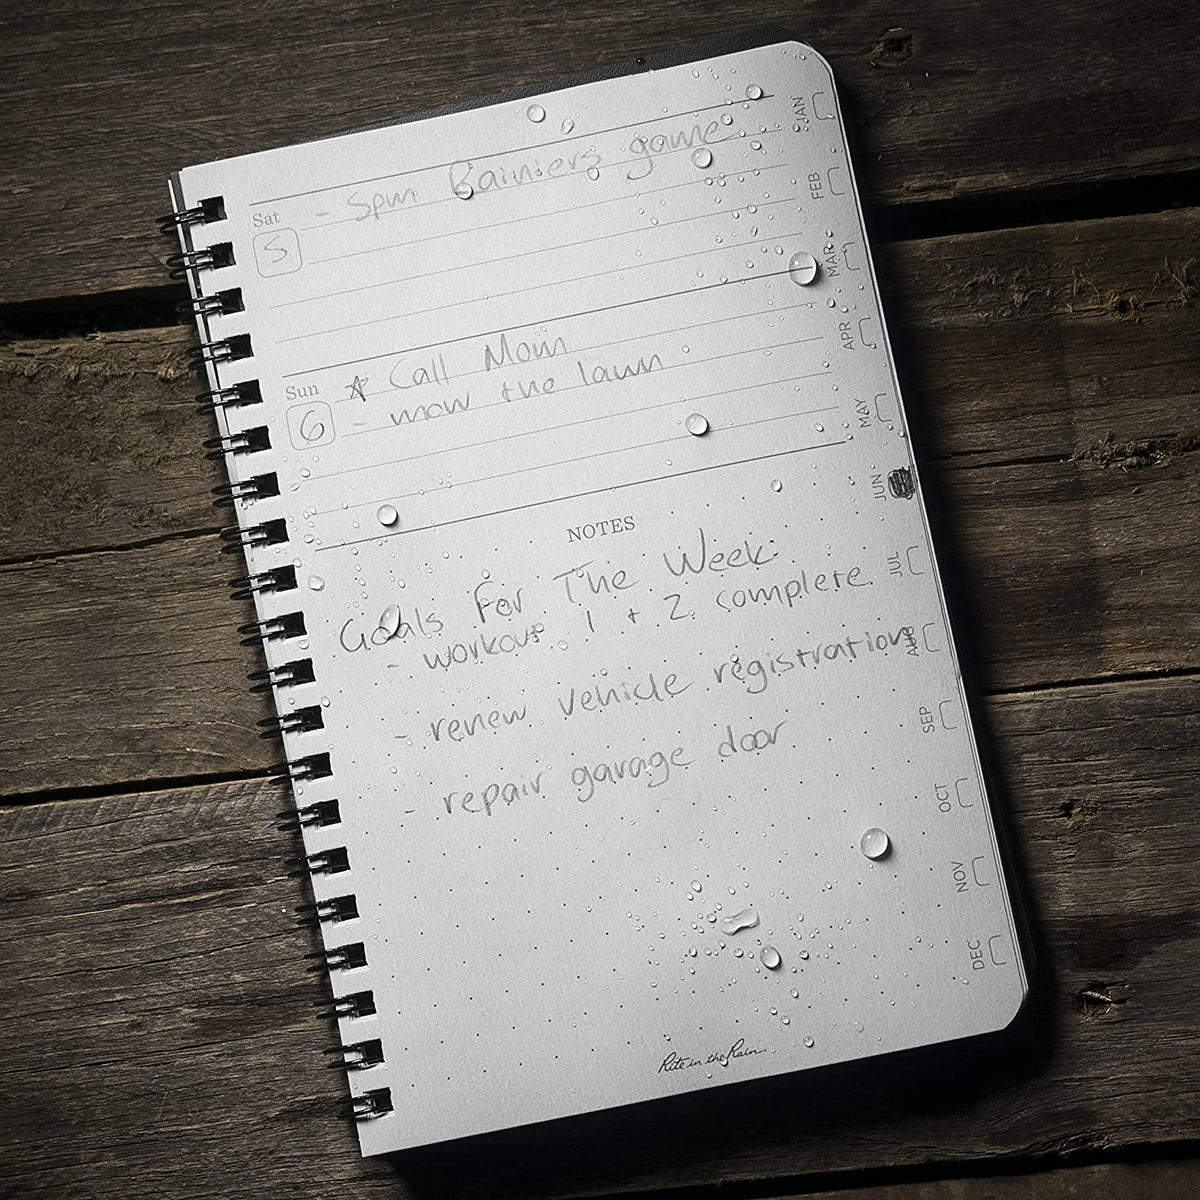 JAN
- 5pm Rainiers game
Sat
5
FEB
MAR
Sun
6
☆ Call Mom
- mow the lawn
APR
MAY
JUN
NOTES
Goals For The Week
- workout 1 + 2 complete
- renew vehicle registration
- repair garage door
JUL
AUG
SEP
OCT
NOV
DEC
Rite in the Rain